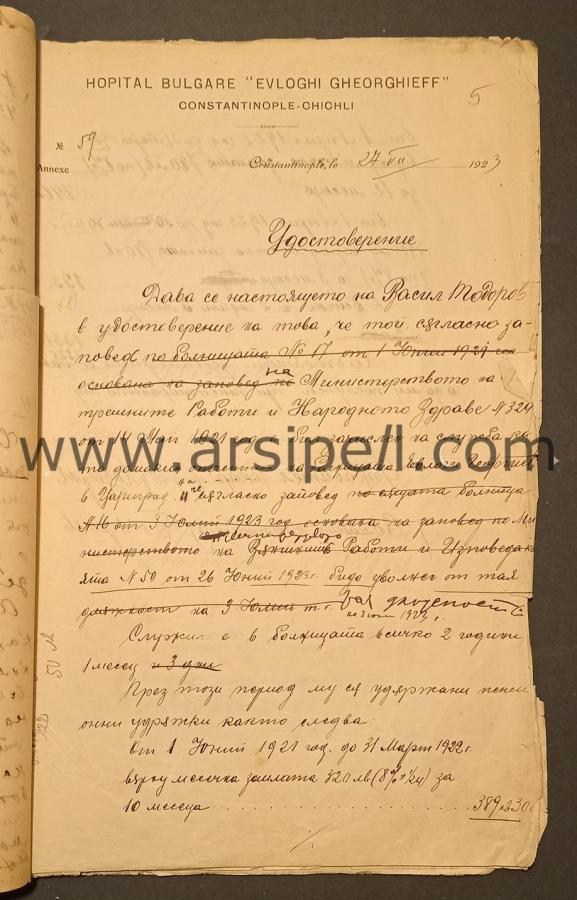 HOPITAL BULGARE "EVLOGHI GHEORGHIEFF"
CONSTANTINOPLE-CHICHLI
5
№ 59
Annexe
Constantinople, le 27 VII 1923
Удостоверение.
Дава се настоящето на Васил Тодоров
в удостоверение на това, че той съгласно за-
поведь по болницата № 17 от 1 Юний 1921 год
основана на заповед на Министерството на
трешните Работи и Народното Здраве N 324
от 14 Май 1921 год е бил на служба ка-
то домакин на болницата Евлоги Георгиев
в Цариград и съгласно заповед по същата болница
N 16 от 3 Юлий 1923 год основана на заповед по Ми-
нистерството на Работи и Изповеда-
N 50 от 26 Юний 1923 г. биде уволнен от тая
длъжност на 3 Юлий т. г.
Служил е в болницата всичко 2 години
1 месец и 3 дни
През този период му ся удържани пенси
онни удръжки както следва:
От 1 Юний 1921 год. до 31 Март 1922 г.
върху месечна заплата 320 лв (8% + 1/24) за
10 месеца 389 лв 30
www.arsipell.com